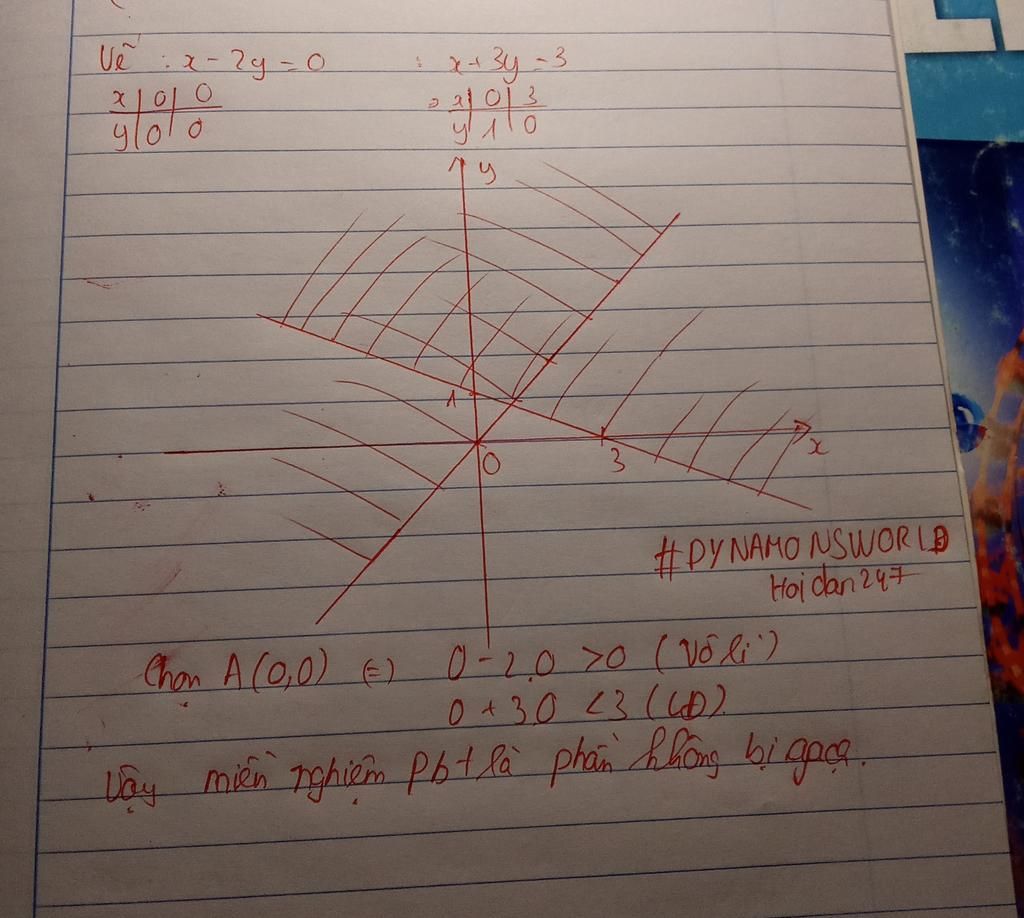 Vẽ : x - 2y = 0 : x + 3y = 3
x | 0 | 0 ⇒ x | 0 | 3
y | 0 | 0 y | 1 | 0
y
1
0 3 x
#DYNAMONSWORLD
Hoidan247
Chọn A(0,0) (=) 0 - 2.0 > 0 (Vô lí)
0 + 3.0 < 3 (LĐ)
Vậy miền nghiệm pbt là phần không bị gạch.